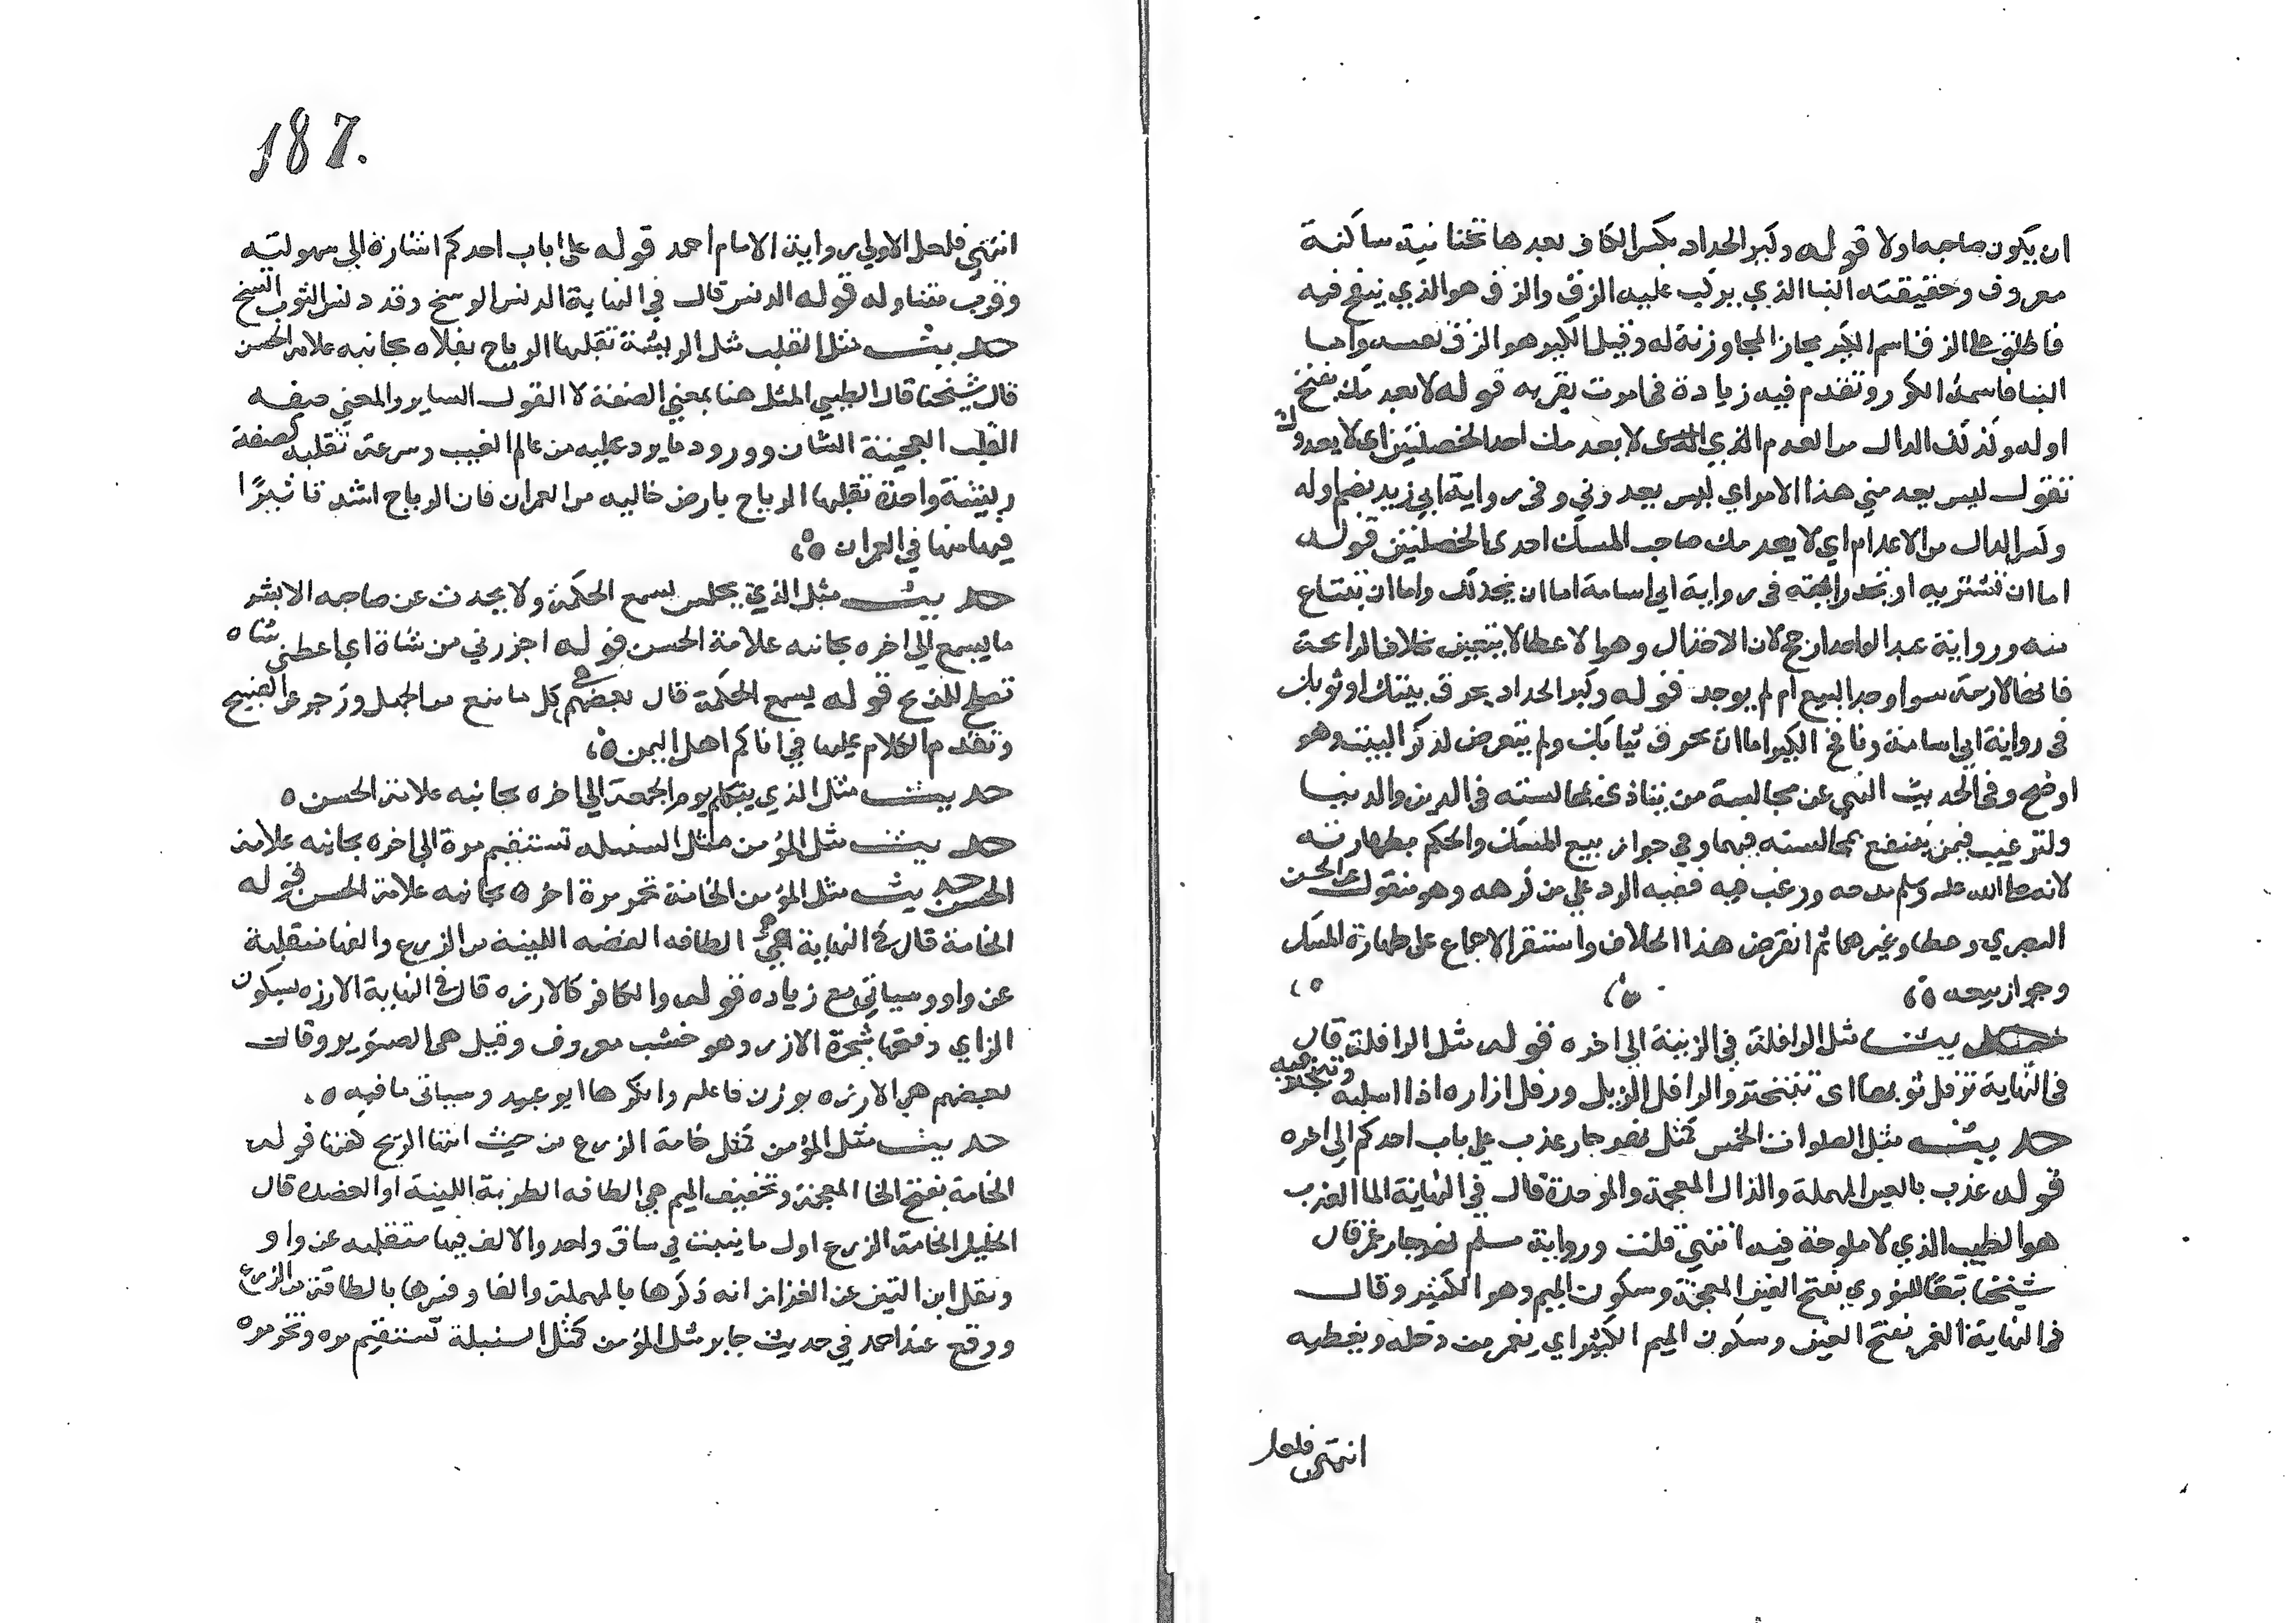 ان يكون صاحبه اولا قوله وكير الحداد بكسر الكاف بعدها تحتانية ساكنة
معروف وحقيقته البنا الذي يركب عليه الزق والزق هو الذي ينفخ فيه
فاطلق على الزق اسم الكير مجازا لمجاورته له وقيل الكير هو الزق نفسه واما
البنا فاسمه الكور وتقدم فيه زيادة في اموت بقربه قوله لا يعدمك بفتح
اوله وكذلك الدال من العدم الذي لا يعدمك احد الخصلتين اى لا يعدوك
تقول ليس يعدمني هذا الامر اي ليس يعدوني وفى رواية ابي زيد بضم اوله
وكسر الدال من الاعدام اي لا يعدمك صاحب المسك احدى الخصلتين قوله
اما ان تشتريه او تجد رايحته فى رواية ابي اسامة اما ان يحذيك واما ان تبتاع
منه ورواية عبد الواحد ارجح لان الاحذا وهو الاعطا لا يتعين بخلاف الرائحة
فانها لازمة سوا وجد البيع ام لم يوجد قوله وكير الحداد يحرق بيتك او ثوبك
فى رواية ابي اسامة ونافخ الكير اما ان يحرق ثيابك ولم يتعرض لذكر البيت وهو
اوضح وفي الحديث النهي عن مجالسة من يتاذى بمجالسته فى الدين والدنيا
ولترغيب فيمن ينتفع بمجالسته فيهما وفي جواز بيع المسك والحكم بطهارته
لانه صلى الله عليه وسلم مدحه ورغب فيه ففيه الرد على من كرهه وهو منقول عن الحسن
البصري وعطا وغيرهما ثم انقرض هذا الخلاف واستقر الاجماع على طهارة المسك
وجواز بيعه
حديث مثل الرافلة في الزينة الي اخره قوله مثل الرافلة قال
فى النهاية ترفل ثوبها اى تتبختر والرافل الذيل ورفل ازاره اذا اسبله وتبختر فيه
حديث مثل الصلوات الخمس كمثل نهر جار عذب على باب احدكم الى اخره
قوله عذب بالعين المهملة والذال المعجمة والموحدة قال في النهاية الما العذب
هو الطيب الذي لا ملوحة فيه انتهي قلت ورواية مسلم نهر جار غمر قال
شيخنا تبعا للنووي بفتح الغين المعجمة وسكون الميم وهو الكثير وقال
في النهاية الغمر بفتح الغين وسكون الميم الكثير اي يغمر من دخله ويغطيه
انتهى فلعل
187.
انتهي فلعل الاولي رواية الامام احمد قوله على باب احدكم اشارة الي سهولته
وقرب تناوله قوله الدنس قال في النهاية الدنس الوسخ وقد دنس الثوب اتسخ
حديث مثل القلب مثل الريشة تقلبها الرياح بفلاه بجانبه علامة الحسن
قال شيخنا قال الطيبي المثل هنا بمعني الصفة لا القول الساير والمعني صفة
القلب العجيبة الشان وورود ما يرد عليه من عالم الغيب وسرعة تقلبه كصفة
ريشة واحدة تقلبها الرياح بارض خاليه من العمران فان الرياح اشد تاثيرا
فيها منها في العمران
حديث مثل الذي يجلس يسمع الحكمة ولا يحدث عن صاحبه الا بشر
ما يسمع الي اخره بجانبه علامة الحسن قوله اجزرني من شاة اي اعطني شاه
تصلح للذبح قوله يسمع الحكمة قال بعضهم هي كل ما منع من الجهل وزجر عن القبيح
وتقدم الكلام عليها في اتاكم اهل اليمن
حديث مثل الذي يتكلم يوم الجمعة الي اخره بجانبه علامة الحسن
حديث مثل المؤمن مثل السنبله تستقيم مرة الي اخره بجانبه علامة
الحسن حديث مثل المؤمن الخامة تحمر مرة اخره بجانبه علامة الحسن قوله
الخامة قال في النهاية هي الطاقه الغضه اللينة من الزرع والفها منقلبة
عن واو وسياتي مع زياده قوله والكافر كالارزه قال في النهاية الارزه بسكون
الزاي وفتحها شجرة الارز وهو خشب معروف وقيل هى الصنوبر وقال
بعضهم هي الارزه بوزن فاعله وانكرها ابو عبيد وسياتى ما فيه
حديث مثل المؤمن كمثل خامة الزرع من حيث اتتها الريح كفتها قوله
الخامة بفتح الخا المعجمة وتخفيف الميم هي الطاقه الطرية اللينة او الغضه قال
الخليل الخامة الزرع اول ما ينبت في ساق واحد والالف فيها منقلبه عن واو
ونقل ابن التين عن القزاز انه ذكرها بالمهملة والفا وفسرها بالطاقة من الزرع
ووقع عند احمد في حديث جابر مثل المؤمن كمثل السنبلة تستقيم مره وتخر مره